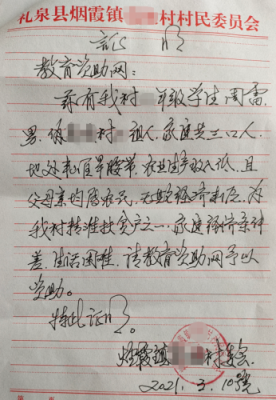 礼泉县烟霞镇 村村民委员会
证 明
教育资助网:
兹有我村 年级学生周雷
男，系 村 组人，家庭共三口人，
地处 旱腰带，农业生产收入低，且
父母亲均居农民，无 经济来源，为
我村精准扶贫户之一，家庭经济条件
差，生活困难，请教育资助网予以
资助。
特此证明。
烟霞镇 村委会
2021. 3. 10号